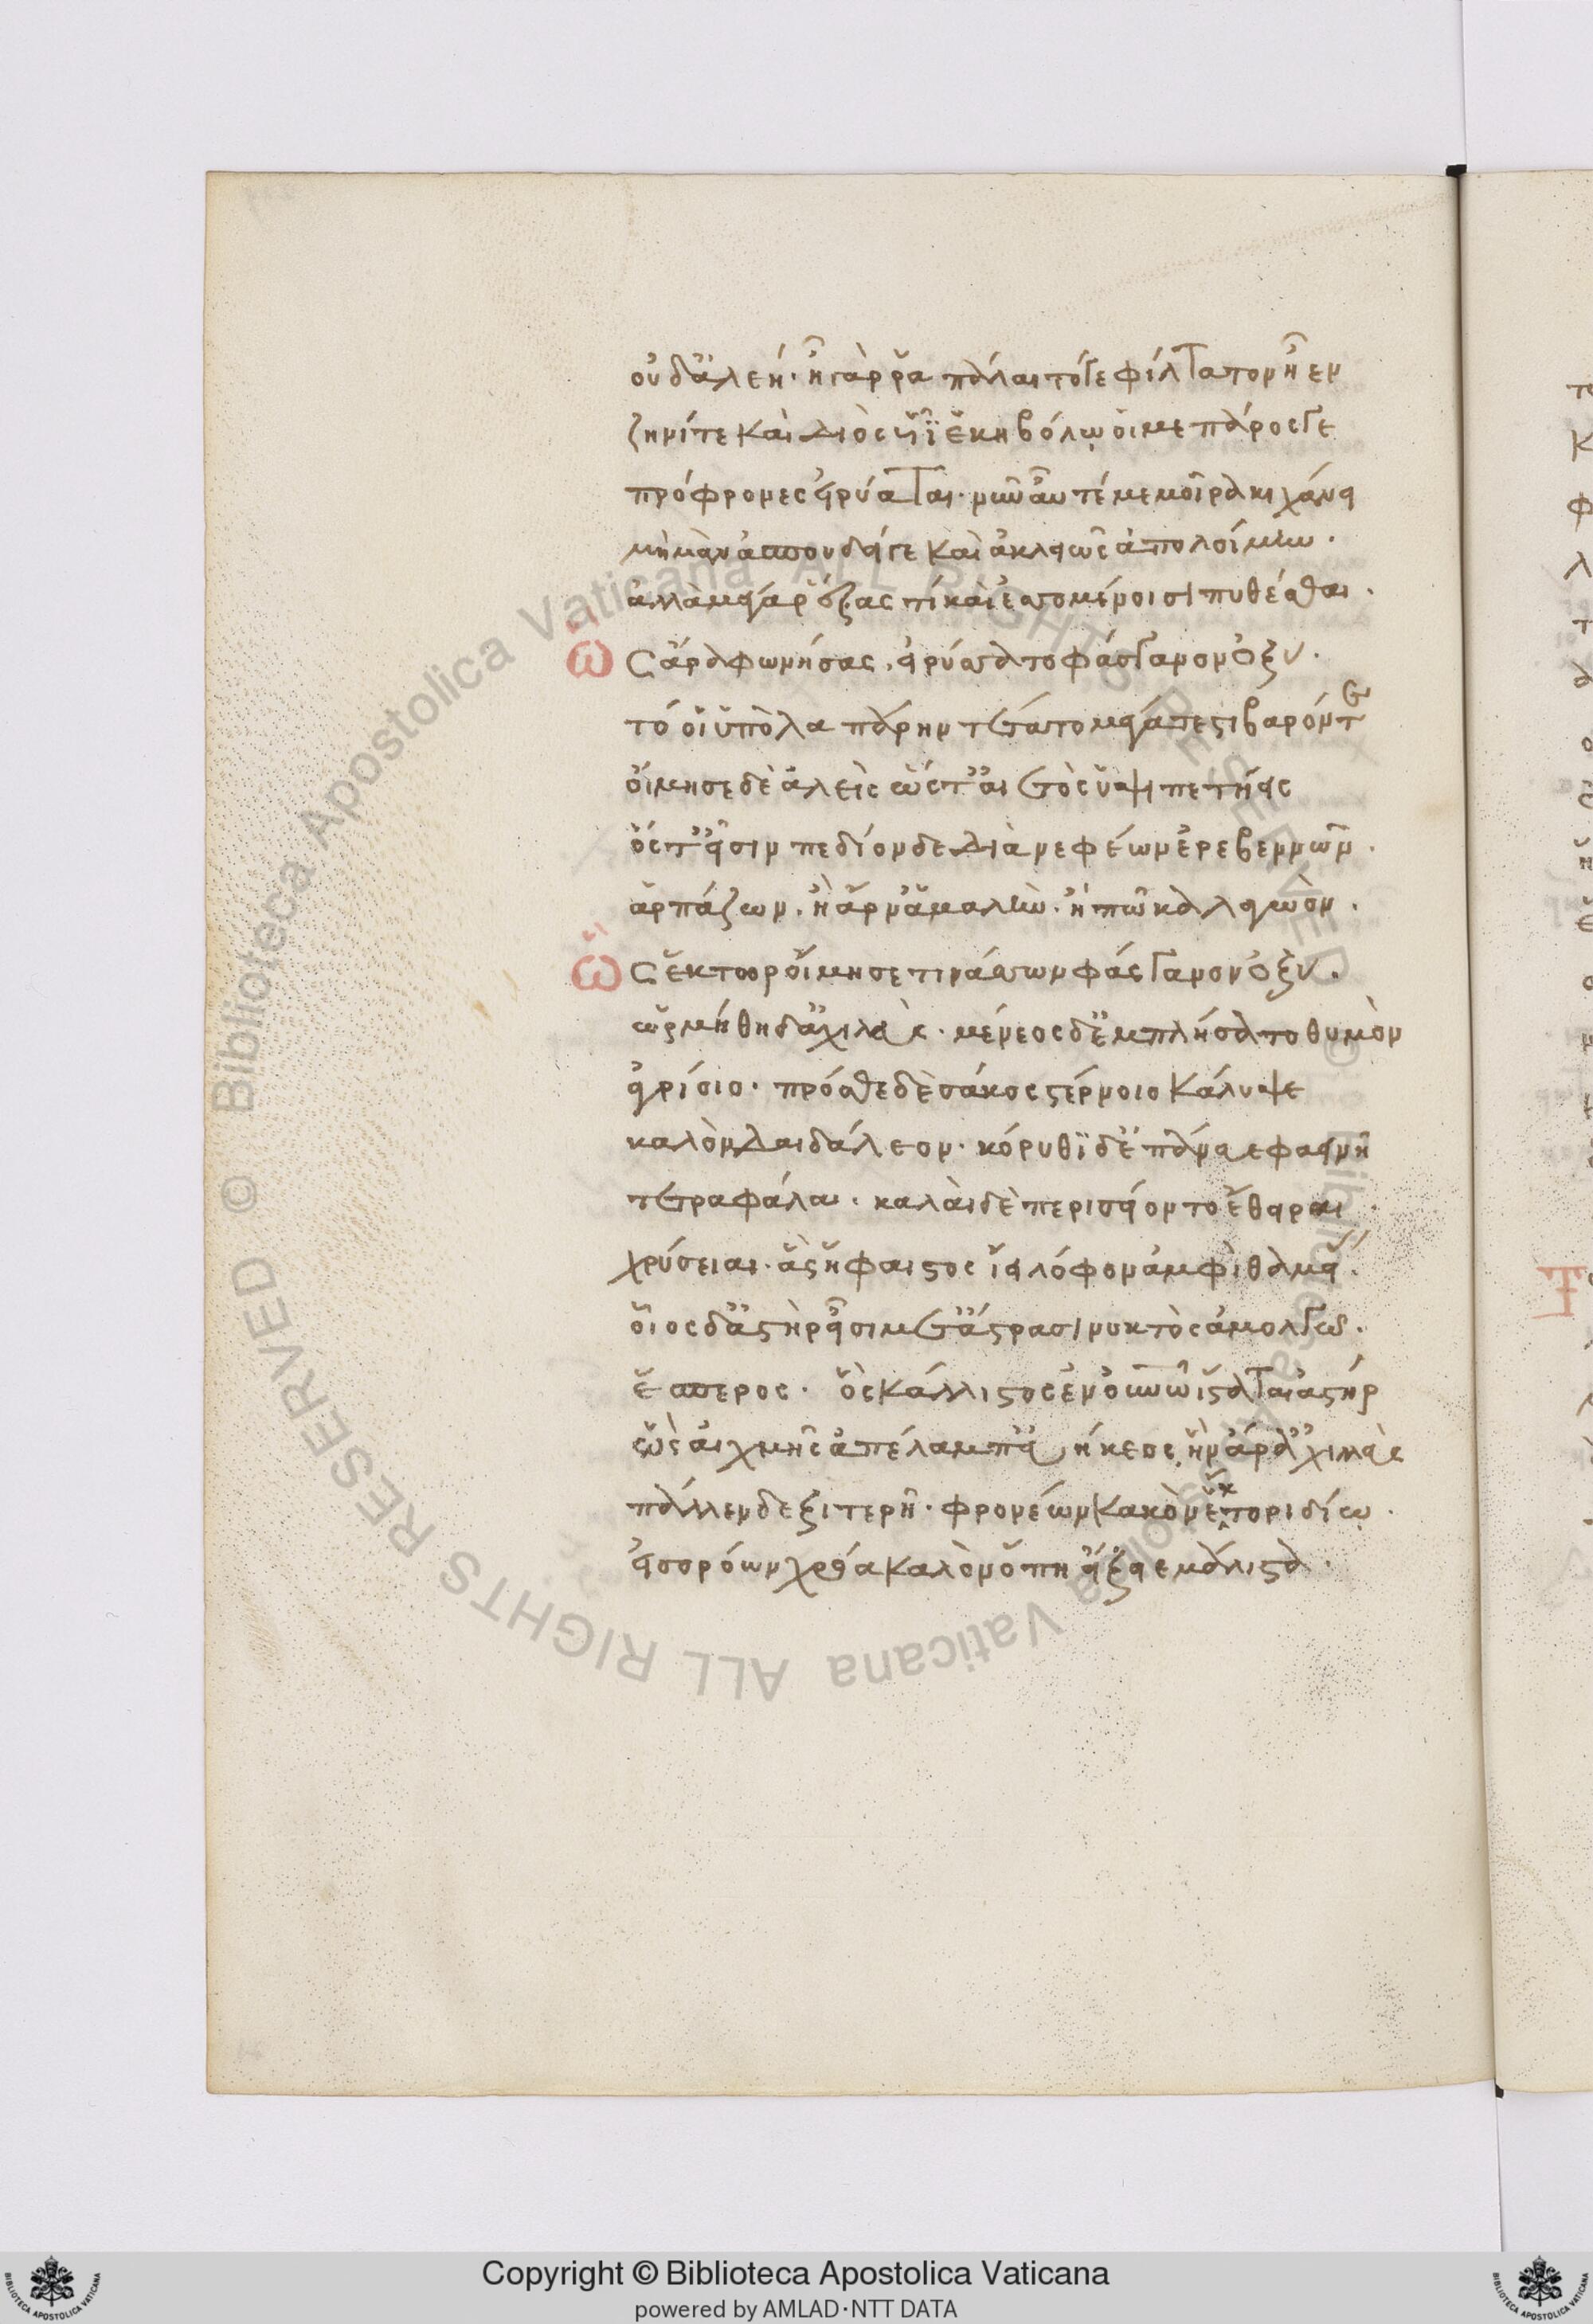 οὐδ' ἀλέη· ἦ γάρ ῥα πάλαι τόγε φίλτατον ἦεν
ζηνί τε καὶ Διὸς υἷϊ ἑκηβόλῳ οἵ με πάρος γε
πρόφρονες εἰρύαται· νῦν αὖτέ με μοῖρα κιχάνει
μὴ μὰν ἀσπουδεί γε καὶ ἀκλειῶς ἀπολοίμην.
ἀλλὰ μέγα ῥέξας τί καὶ ἐσσομένοισι πυθέσθαι.
ὣς ἄρα φωνήσας, εἰρύσατο φάσγανον ὀξύ.
τό οἱ ὑπὸ λαπάρην τέτατο μέγα τε στιβαρόν τε
οἴμησε δὲ ἀλεὶς ὥστ' αἰετὸς ὑψιπετήεις
ὅστ' εἶσιν πεδίον δε διὰ νεφέων ἐρεβεννῶν.
ἁρπάξων, ἢ ἄρν' ἀμαλὴν· ἢ πτῶκα λαγωόν.
ὣς ἕκτωρ οἴμησε τινάσσων φάσγανον ὀξύ.
ὡρμήθη δ' ἀχιλεὺς· μένεος δ' ἐμπλήσατο θυμὸν
ἀγρίοιο· πρόσθε δὲ σάκος στέρνοιο κάλυψε
καλὸν δαιδάλεον· κόρυθι δ' ἐπένευε φαεινῆ
τετραφάλω· καλαὶ δὲ περισσείοντο ἔθειραι
χρύσειαι· ἃς ἥφαιστος ἵει λόφον ἀμφὶ θαμειάς.
οἷος δ' ἀστὴρ εἶσι μετ' ἀστράσι νυκτὸς ἀμολγῶ.
ἕσπερος· ὃς κάλλιστος ἐν οὐρανῶ ἵσταται ἀστήρ
ὣς αἰχμῆς ἀπέλαμπ' εὐήκεος, ἣν ἄρ' ἀχιλλεὺς
πάλλεν δεξιτερῆ· φρονέων κακὸν ἕκτορι δίῳ.
εἰσορόων χρόα καλὸν ὅπη εἴξειε μάλιστα.
Copyright © Biblioteca Apostolica Vaticana
powered by AMLAD·NTT DATA